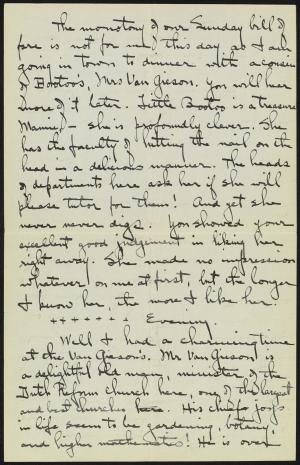 The monotony of our Sunday bill of
fare is not for me, this day, as I am
going in town to dinner with a cousin
of Bootoo's, Mrs Van Gieson. You will hear
more of it later. Little Bootoo is a treasure
Mamie! – she is profoundly clever. She
has the faculty of hitting the nail on the
head in a delicious manner. The heads
of departments here ask her if she will
please tutor for them! And yet she
never never digs. You showed your
excellent good judgement in liking her
right away. She made no impression
whatever on me at first, but the longer
I know her, the more I like her.
+ + + + + + Evening.
Well I had a charming time
at the Van Gieson's. Mr Van Gieson is
a delightful old man, minister of the
Dutch Reform church here, one of the largest
and best churches here. His chief joys
in life seem to be gardening, botany
and higher mathematics! He is over